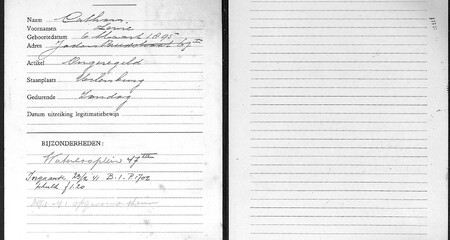 Naam Cathan
Voornamen Levie
Geboortedatum 6 Maart 1895
Adres Jodenbreestraat 67
Artikel Ongeregeld
Staanplaats Uilenburg
Gedurende Zondag
Datum uitreiking legitimatiebewijs
BIJZONDERHEDEN:
Waterlooplein 47
Ingaande 23/2 41 B.I.P. 1702
schuld f 1.20